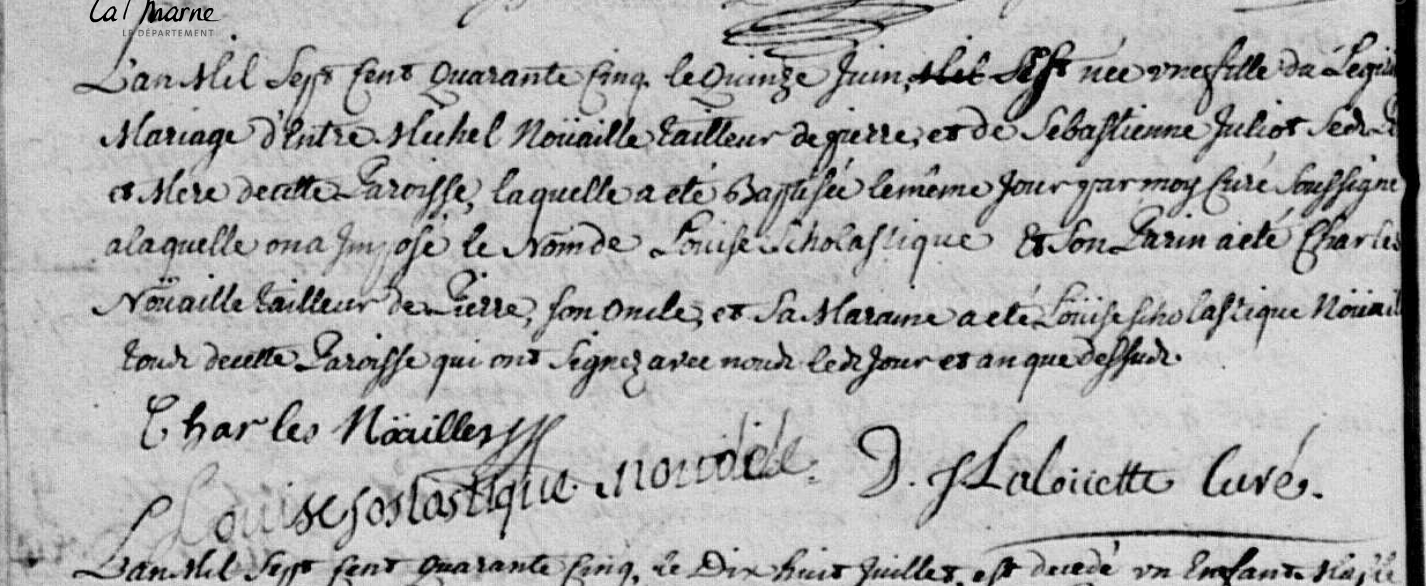 La Marne
LE DÉPARTEMENT
L'an Mil Sept Cent Quarante Cinq, le Quinze Juin, Mil Sept est née une fille du Légi
Mariage d'Entre Michel Noüaille tailleur de pierre, et de Sebastienne Juliot ses
et Mere de cette Paroisse, laquelle a eté Baptisée le même Jour par moy Curé Soussigné
a laquelle on a Imposé le Nom de Louise Scholastique Et son Parin a eté Charles
Noüaille tailleur de Pierre, son oncle, et sa Maraine a eté Loüise scholastique Noüail
tous de cette Paroisse qui ont signez avec nous les Jour et an que dessus.
Charles Noüailles
Louise soslastique D. J Laloüette Curé.
L'an Mil Sept Cent Quarante Cinq, le Dix huit Juillet, est decedé un Enfant Masle